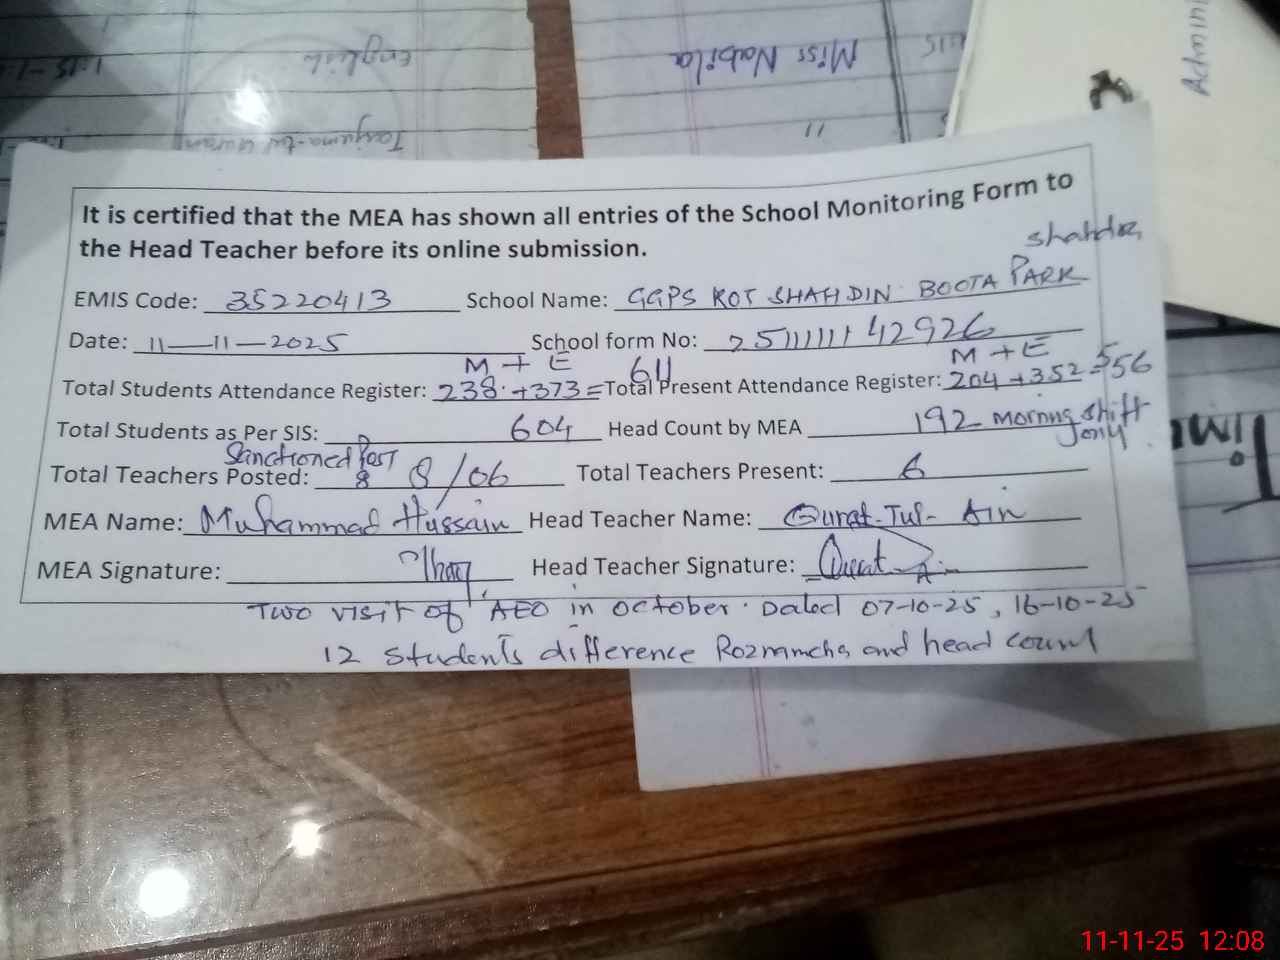 English
Miss Nabila
11
It is certified that the MEA has shown all entries of the School Monitoring Form to
the Head Teacher before its online submission.
EMIS Code: 35220413 School Name: GGPS KOT SHAHDIN BOOTA PARK
Date: 11-11-2025 School form No:
M + E M + E
Total Students Attendance Register: 238+373= 611 Total Present Attendance Register: 204+352=556
Total Students as Per SIS: 604 Head Count by MEA 192 morning shift only
Sanctioned Post 8
Total Teachers Posted: 8/06 Total Teachers Present: 6
MEA Name: Muhammad Hussain Head Teacher Name: Qurat-Tul-Ain
MEA Signature: Head Teacher Signature: Qurat
Two visit of AEO in october. Dated 07-10-25, 16-10-25
12 students difference Roznamcha and head count
11-11-25 12:08